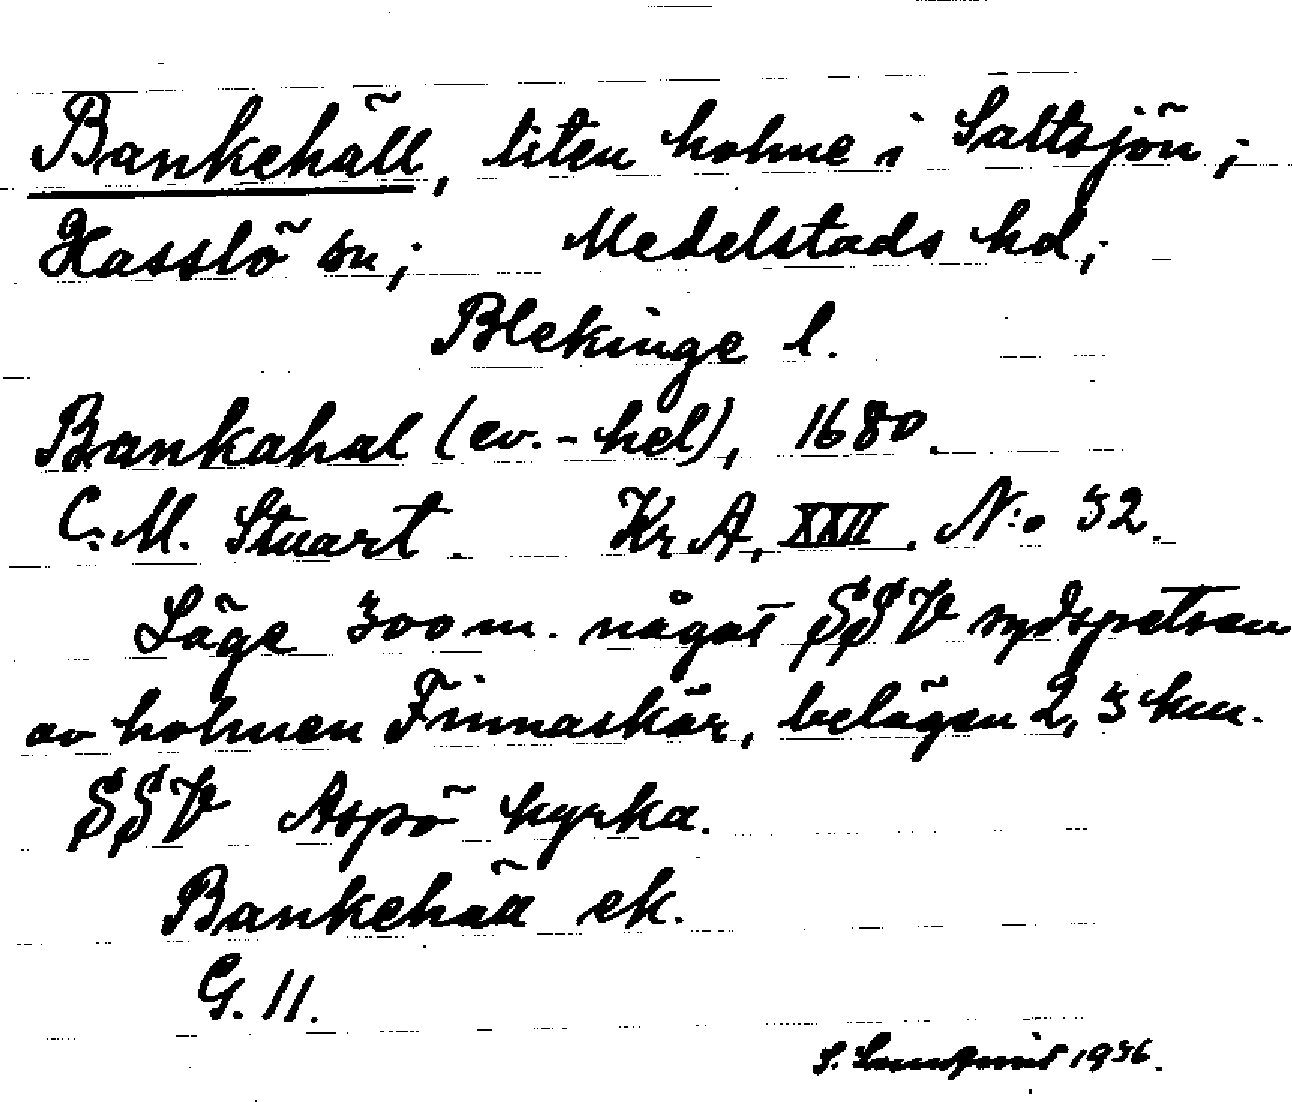 Bankehäll, liten holme i Saltsjön;
Hasslö sn; Medelstads hd;
Blekinge l.
Bankahal (ev. -hel), 1680.
C: M. Stuart. Kr A, XXII. N:o 32.
Läge 300 m. något SSV sydspetsen
av holmen Finnaskär, belägen 2,3 km.
SSV Aspö kyrka.
Bankehäll ek.
G. 11.
S. 1936.